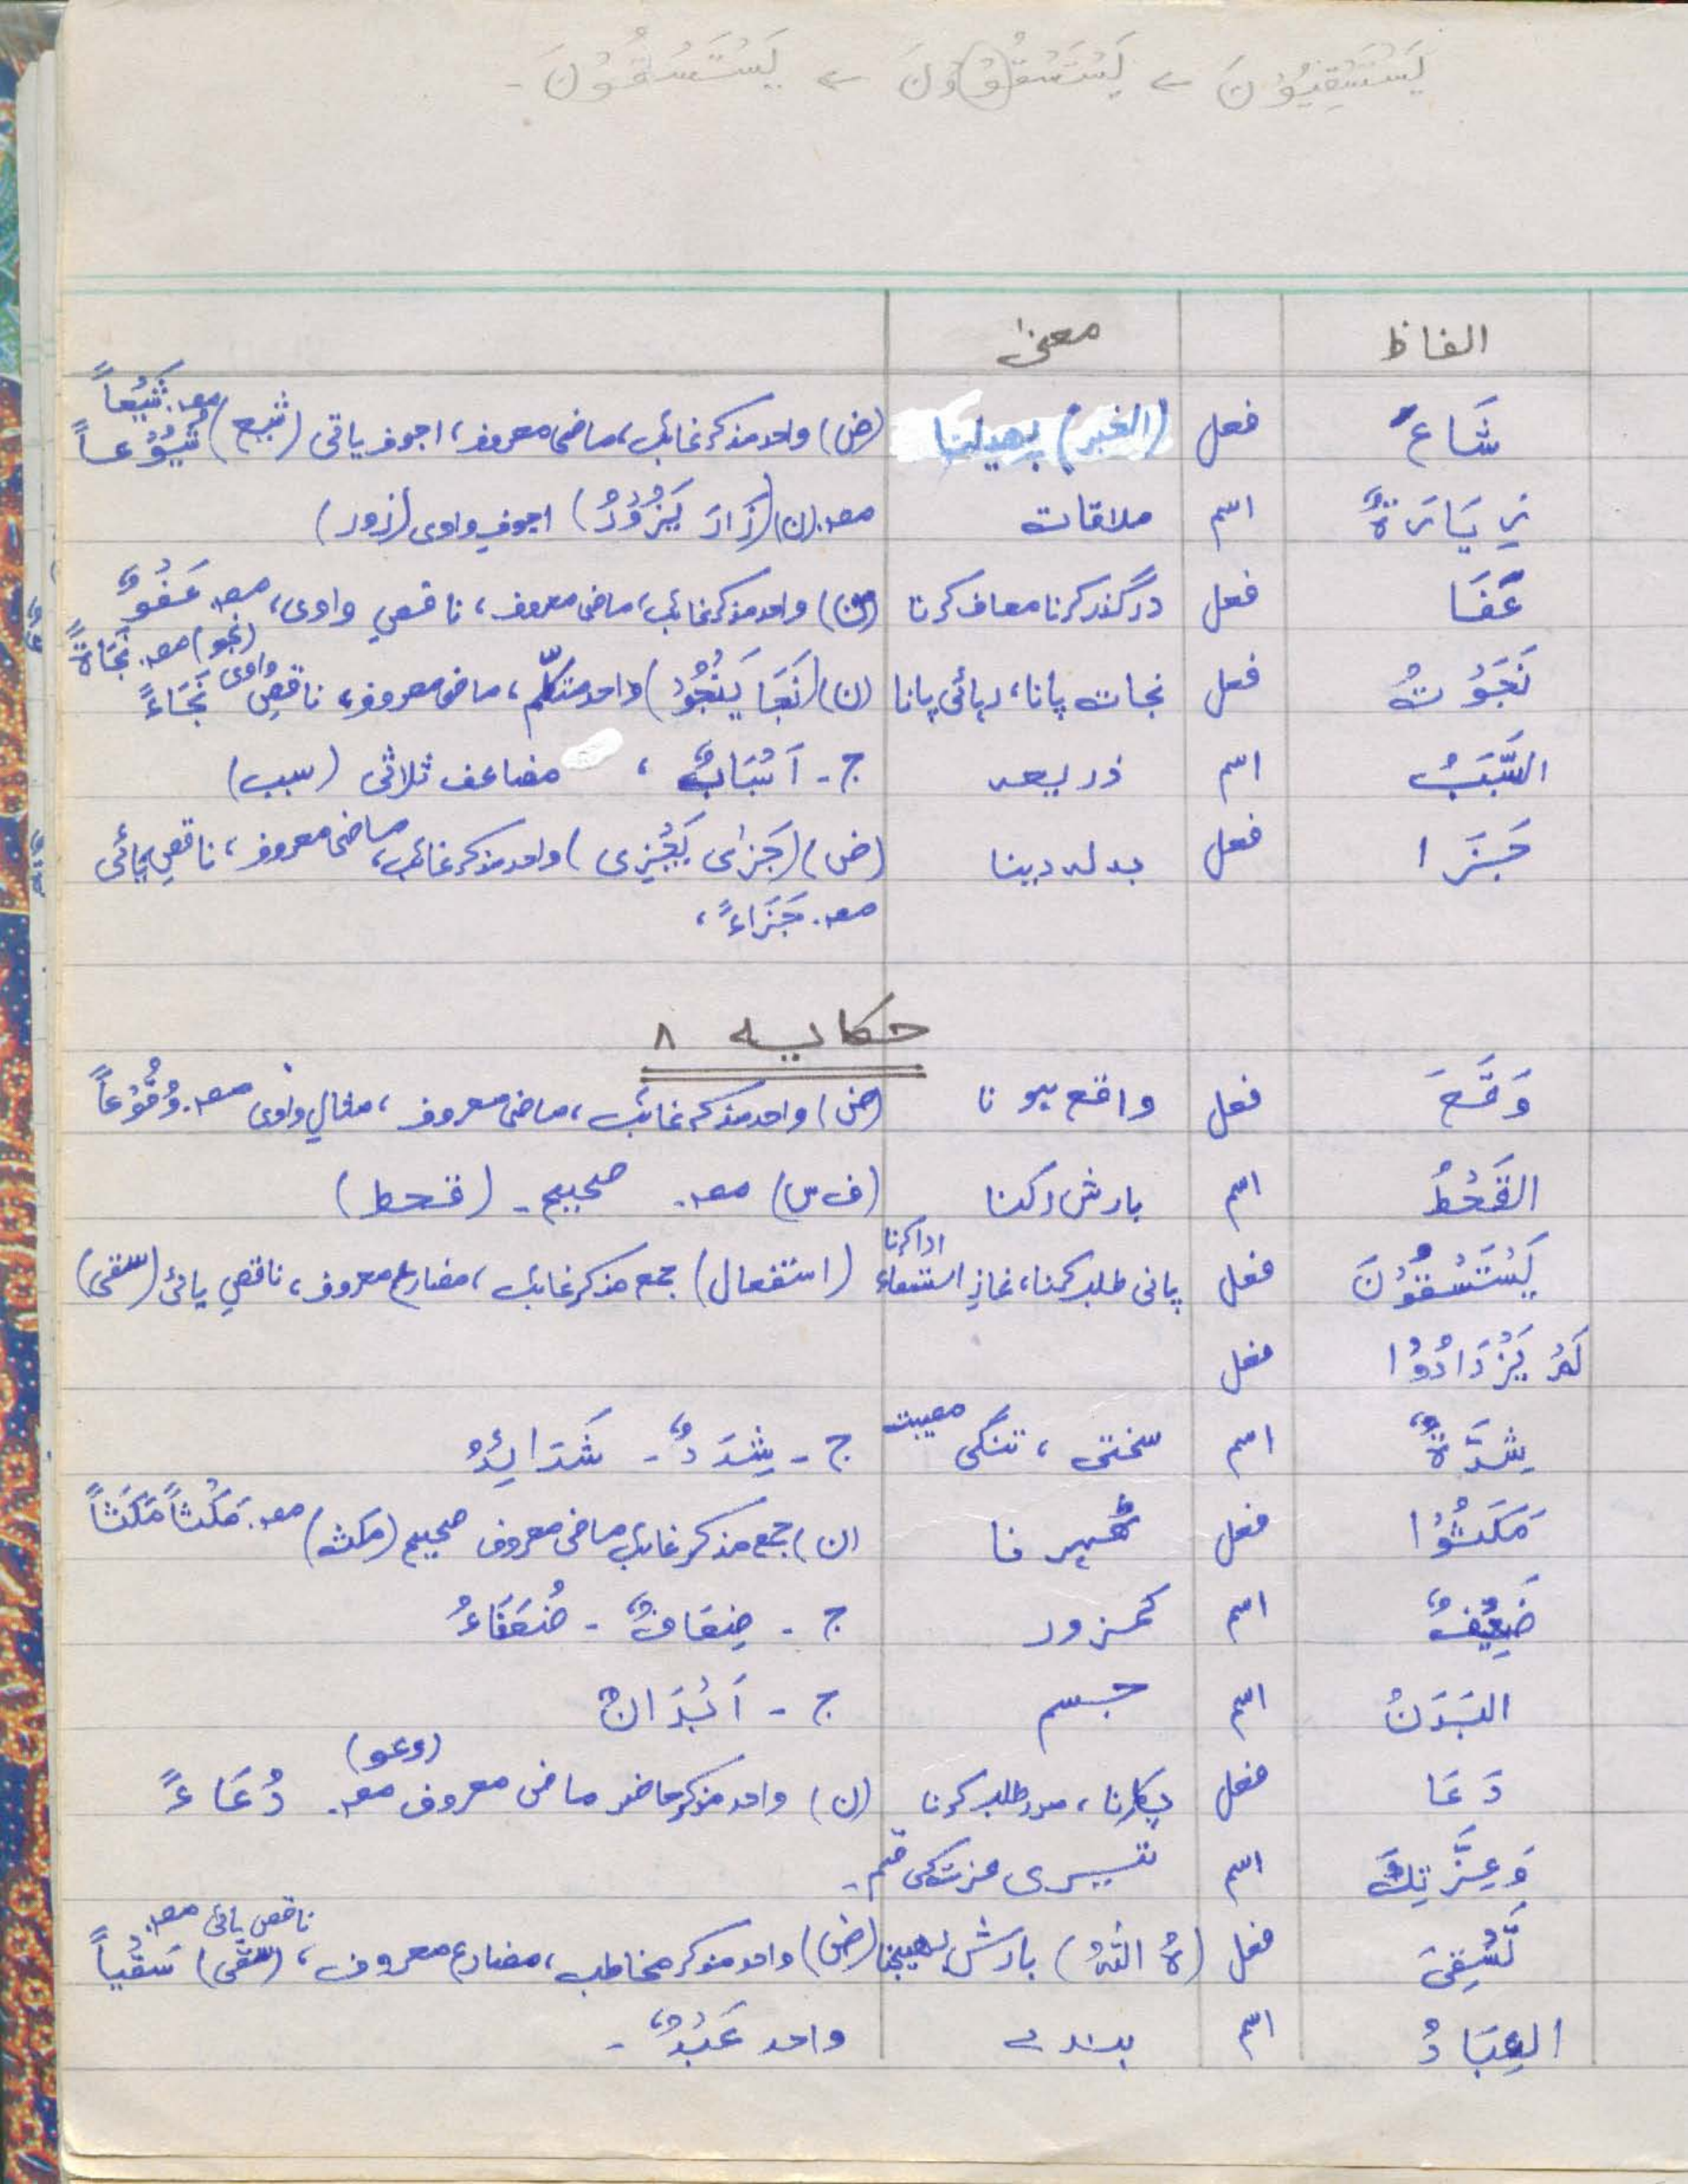 يَسْتَسْقِيُوْنَ ← يَسْتَسْقُوْوْنَ ← يَسْتَسْقُوْنَ ـ
الفاظ معنیٰ
شَاعَ فعل (الخبر) پھیلنا (ض) واحد مذکر غائب، ماضی معروف، اجوف یائی (شیع) مصـ. شَيْعاً شُيُوْعاً
زِيَارَةٌ اسم ملاقات مصـ. (ن) (زَارَ يَزُوْرُ) اجوف واوی (زور)
عَفَا فعل درگذر کرنا معاف کرنا (ن) واحد مذکر غائب، ماضی معروف، ناقص واوی، مصـ. عَفْوٌ
نَجَوْتُ فعل نجات پانا، رہائی پانا (ن) (نَجَا يَنْجُوْ) واحد متکلّم، ماضی معروف، ناقص واوی (نجو) مصـ. نَجَاةً نَجَاءً
السَّبَبُ اسم ذریعہ ج ـ اَسْبَابٌ ، مضاعف ثلاثی (سبب)
جَزَا فعل بدلہ دینا (ض) (جَزٰی يَجْزِی) واحد مذکر غائب، ماضی معروف، ناقص یائی
مصـ. جَزَاءً ،
حکایہ ۸
وَقَعَ فعل واقع ہونا (ض) واحد مذکر غائب، ماضی معروف، مثال واوی مصـ. وُقُوْعاً
القَحْطُ اسم بارش رکنا (ف س) مصـ. صحیح ـ (قحط)
يَسْتَسْقُوْنَ فعل پانی طلب کرنا، نمازِ استسقاء ادا کرنا (استفعال) جمع مذکر غائب، مضارع معروف، ناقص یائی (سقی)
لَمْ يَزْدَادُوْا فعل
شِدَّةٌ اسم سختی ، تنگی مصیبت ج ـ شِدَدٌ ـ شَدَائِدُ
مَكَثُوْا فعل ٹھہرنا (ن) جمع مذکر غائب ماضی معروف صحیح (مکث) مصـ. مَكْثاً مَكَثاً
ضَعِيْفٌ اسم کمزور ج ـ ضِعَافٌ ـ ضُعَفَاءُ
البَدَنُ اسم جسم ج ـ اَبْدَانٌ
دَعَا فعل پکارنا، مدد طلب کرنا (ن) واحد مذکر حاضر ماضی معروف (دعو) مصـ. دُعَاءً
وَعِزَّتِكَ اسم تیری عزت کی قسم ـ
تَسْقِیَ فعل (هُ اللهُ) بارش بھیجنا (ض) واحد مذکر مخاطب، مضارع معروف، (سقی) ناقص یائی مصـ. سَقْياً
العِبَادُ اسم بندے واحد عَبْدٌ ـ